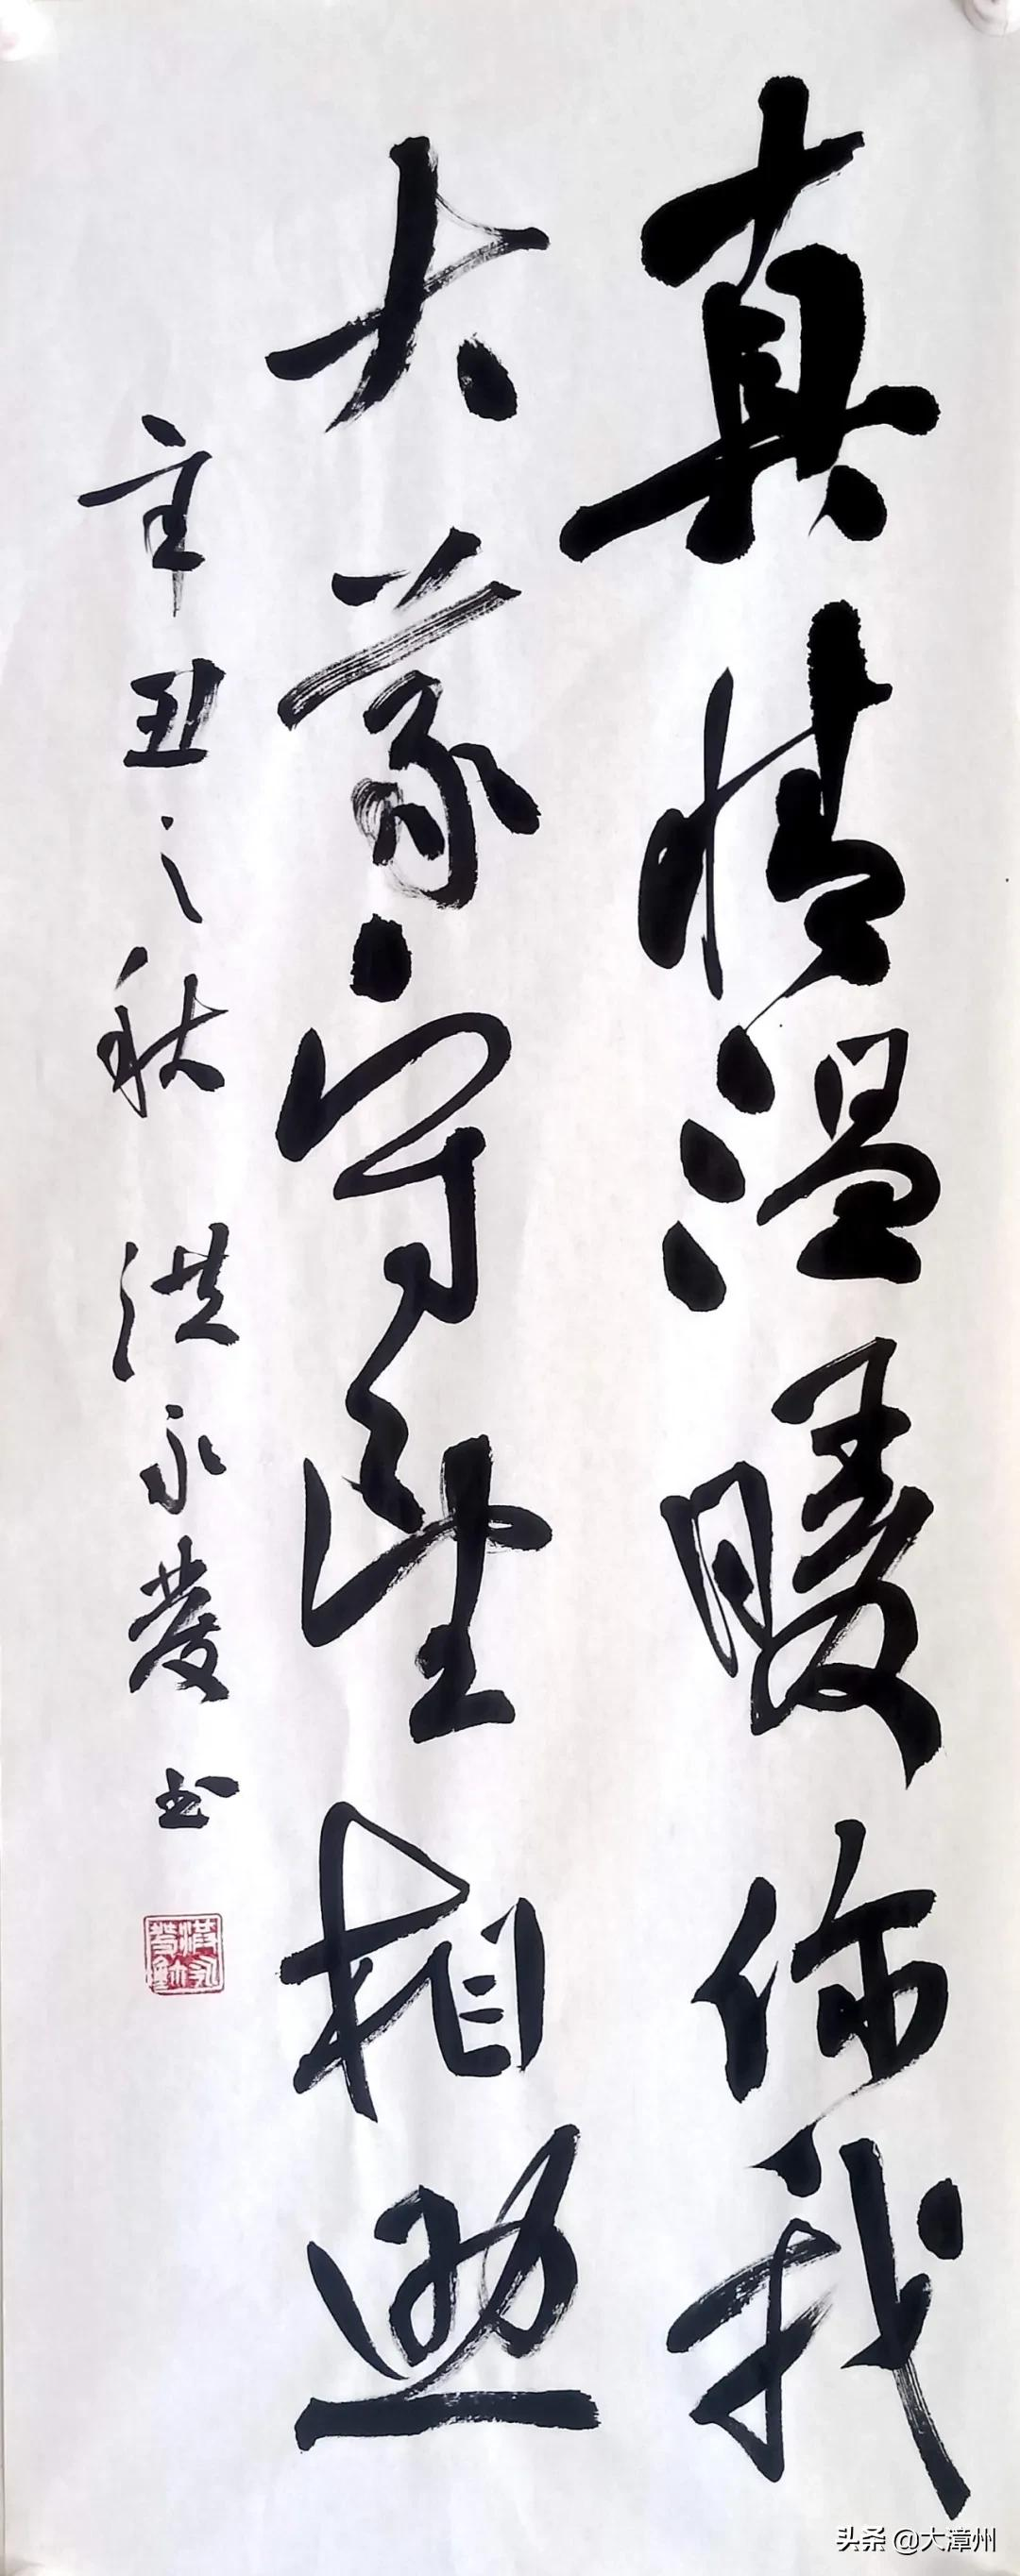 真情温暖你我
大家守望相助
辛丑之秋 洪永發书
头条 @大漳州